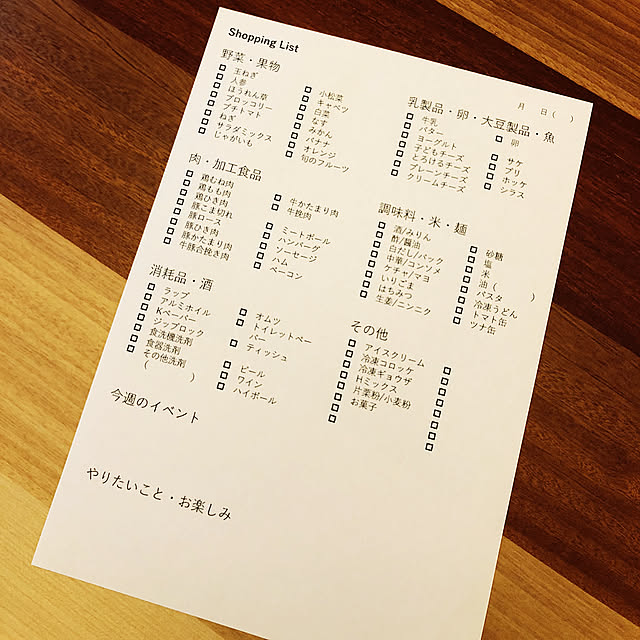 Shopping List
月　日（　）
野菜・果物
玉ねぎ
人参
ほうれん草
ブロッコリー
プチトマト
ねぎ
サラダミックス
じゃがいも
小松菜
キャベツ
白菜
なす
みかん
バナナ
オレンジ
旬のフルーツ
肉・加工食品
鶏むね肉
鶏もも肉
鶏ひき肉
豚こま切れ
豚ロース
豚ひき肉
豚かたまり肉
牛豚合挽き肉
牛かたまり肉
牛挽肉
ミートボール
ハンバーグ
ソーセージ
ハム
ベーコン
消耗品・酒
ラップ
アルミホイル
Kペーパー
ジップロック
食洗機洗剤
食器洗剤
その他洗剤
（　　　）
オムツ
トイレットペー
パー
ティッシュ
ビール
ワイン
ハイボール
今週のイベント
やりたいこと・お楽しみ
乳製品・卵・大豆製品・魚
牛乳
バター
ヨーグルト
子どもチーズ
とろけるチーズ
プレーンチーズ
クリームチーズ
卵
サケ
ブリ
ホッケ
シラス
調味料・米・麺
酒/みりん
酢/醤油
白だし/パック
中華/コンソメ
ケチャ/マヨ
いりごま
はちみつ
生姜/ニンニク
砂糖
塩
米
油（　　　）
パスタ
冷凍うどん
トマト缶
ツナ缶
その他
アイスクリーム
冷凍コロッケ
冷凍ギョウザ
Hミックス
片栗粉/小麦粉
お菓子